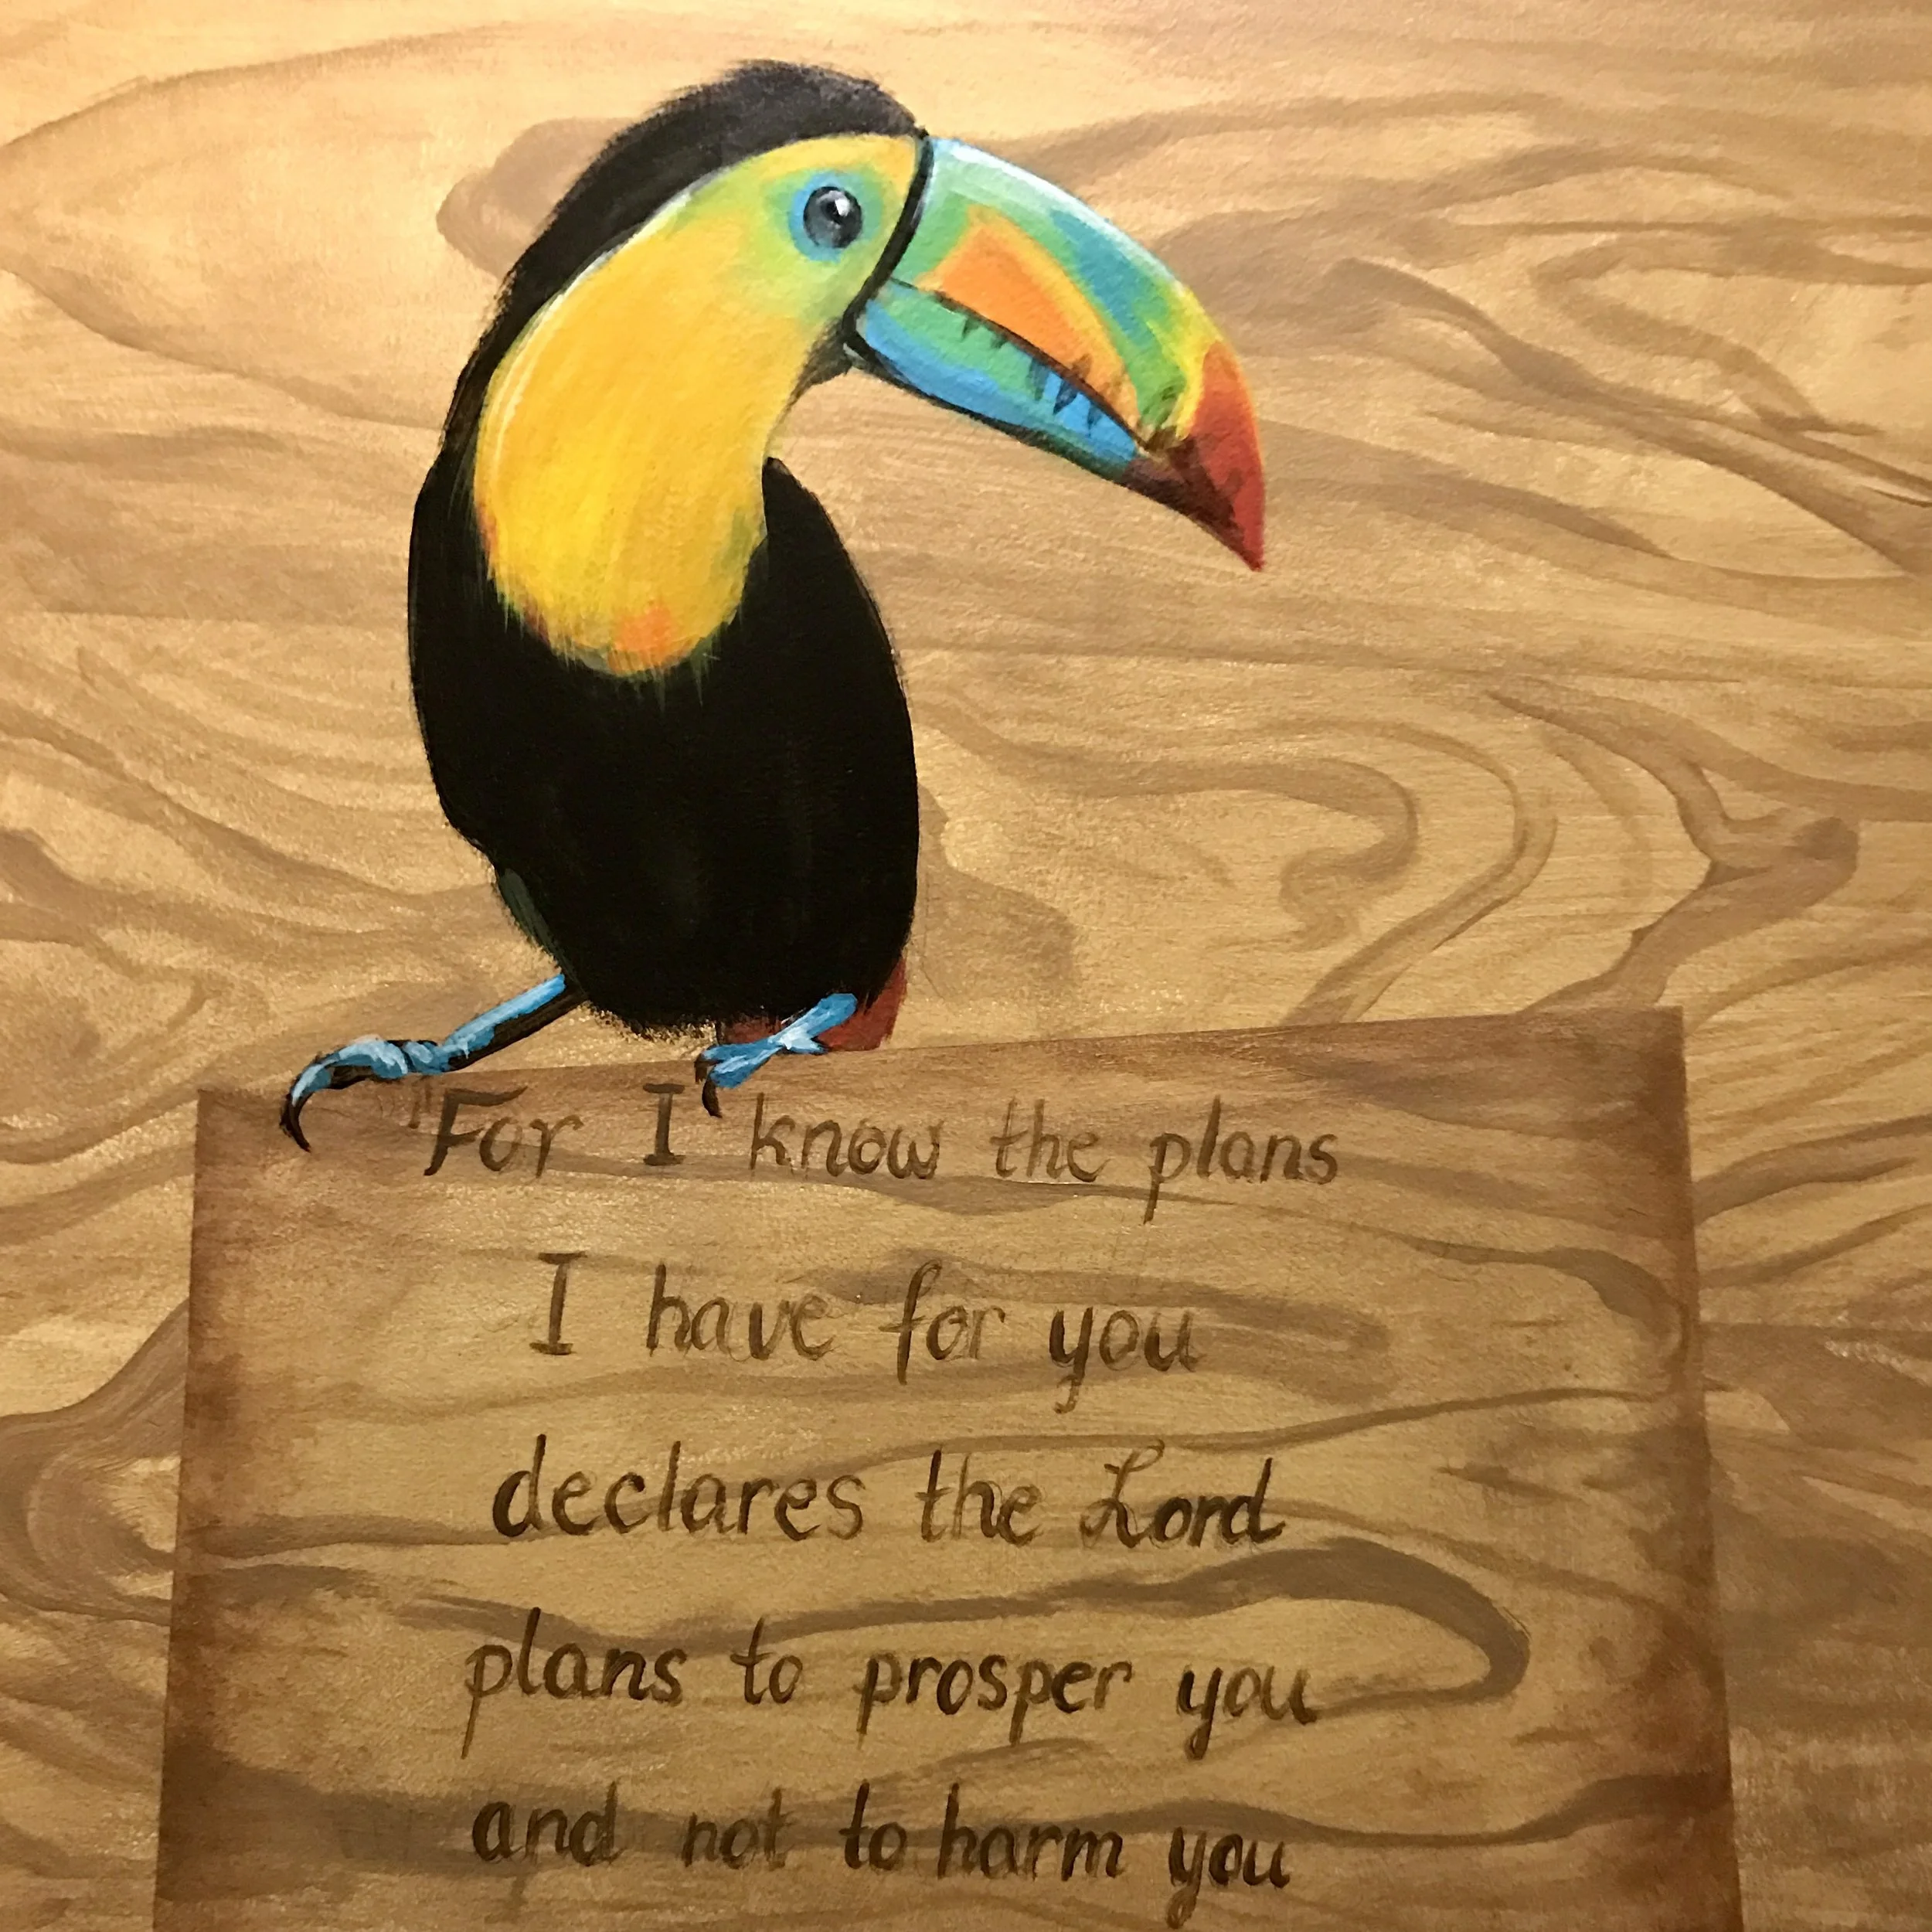 "For I know the plans
I have for you
declares the Lord
plans to prosper you
and not to harm you